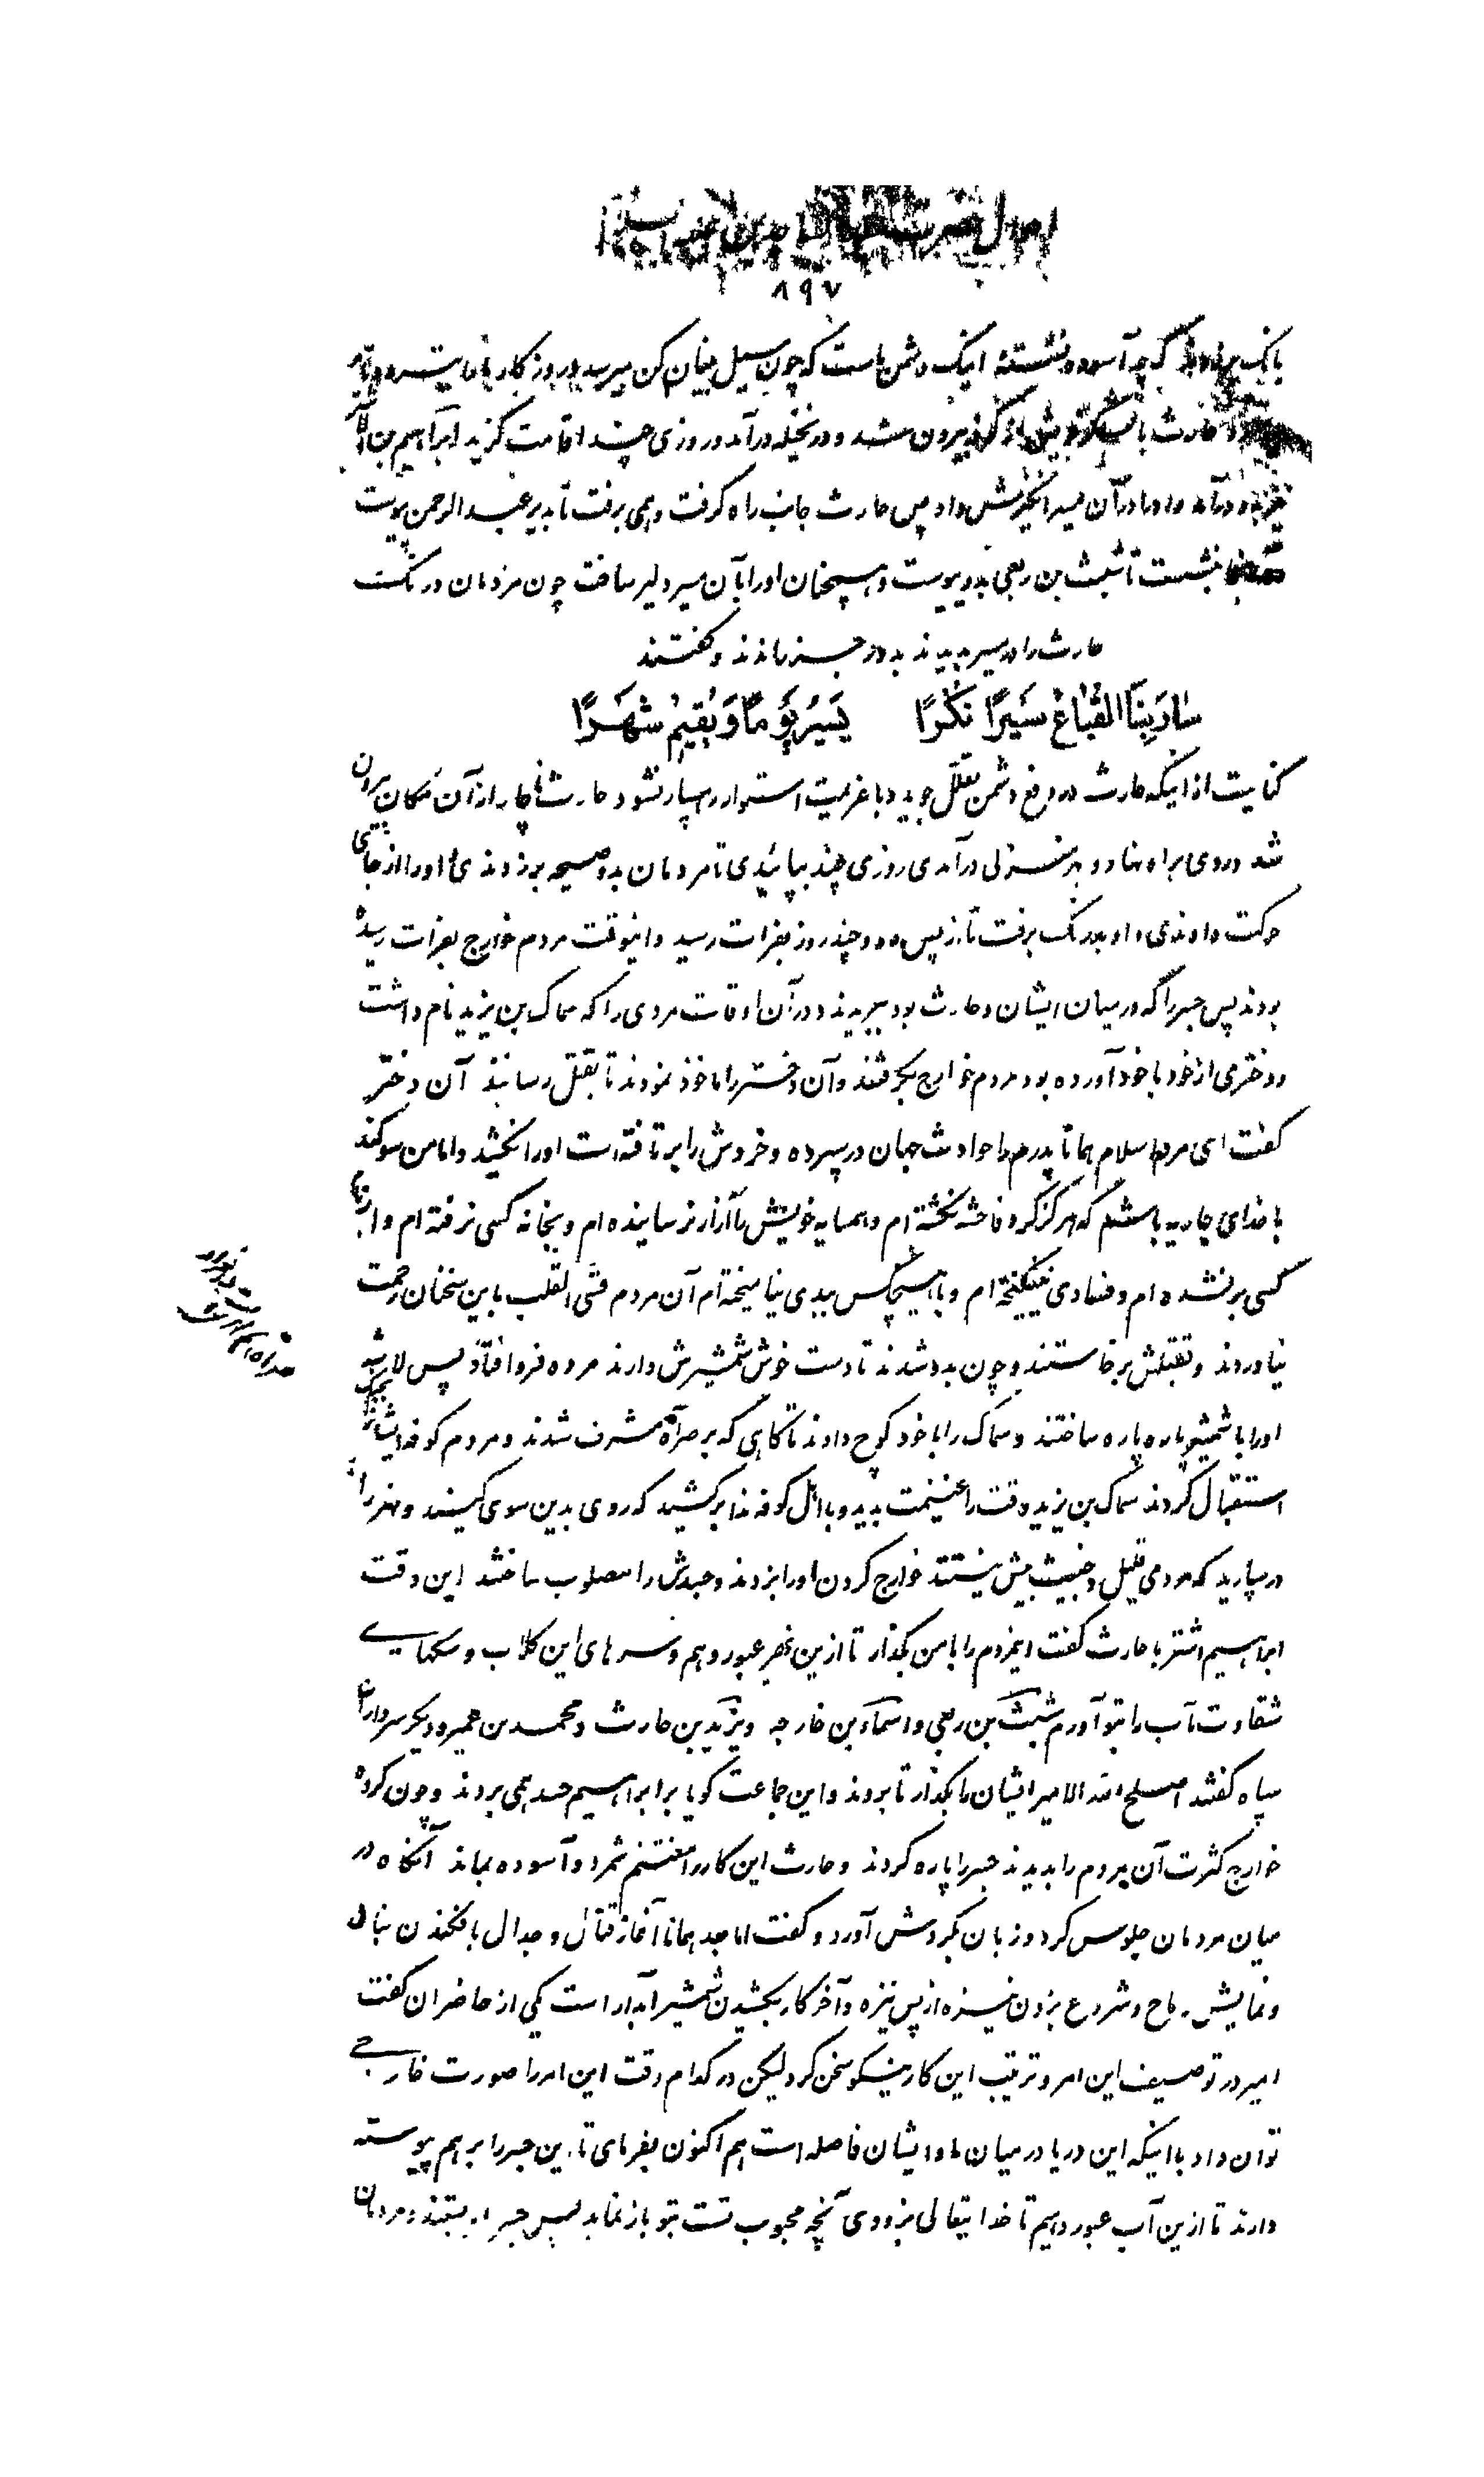 ۸۹۷
بانک برداشتند که چه آسوده نشسته اینک دشمن ماست که چون سیل بنیان کن میرسد و روزکار ما
حارث با لشکر خویش از کوفه بیرون شد و در نخیله درآمد و روزی چند اقامت کزید ابراهیم بن
نیز درآمد و او را در آن مسیر انکیزش داد پس حارث جانب راه کرفت و همی برفت تا بدیر عبد الرحمن پیوست
بنشست تا شبث بن ربعی بدو پیوست و بسخنان او را بآن مسیر دلیر ساخت چون مردمان درنکست
حارث را در مسیر بدیدند بدو رجز براندند و کفتند
سَارَ بِنَا القُبَاعُ سَیرًا نُکرًا یَسیرُ یَومًا وَ یُقیمُ شَهرًا
کنایت از اینکه حارث در دفع دشمن تعلل جوید و با عزیمت استوار رهسپار نشود حارث ناچار از آن مکان بیرون
شد و روی براه نهاد و بهر منزلی درآمدی روزی چند بپائیدی تا مردمان بدو صیحه برزدندی و او را از جای
حرکت دادندی و او بدرنک برفت تا از پس ده و چند روز بفرات رسید و اینوقت مردم خوارج بفرات رسیده
بودند پس جسر را که در میان ایشان و حارث بود ببریدند و در آن اوقات مردی را که سماک بن یزید نام داشت
و دختری از خود با خود آورده بود مردم خوارج بکرفتند و آن دختر را ماخوذ نمودند تا بقتل رسانند آن دختر
کفت ای مردم اسلام همانا پدرم را حوادث جهان در سپرده و خروش را برتافته است او را نکشید و اما من سوکند
با خدای جاریه باشم که هرکز کرد فاحشه نکشته ام و همسایه خویش را آزار نرسانیده ام و بخانه کسی نرفته ام و از بام
کسی برنشده ام و فسادی نینکیخته ام و با هیچکس ببدی نیامیخته ام آن مردم قسی القلب باین سخنان رحمت
نیاوردند و بقتلش برخاستند و چون بدو شدند تا دست خوش شمشیرش دارند مرده فرو افتاد پس
او را با شمشیر پاره پاره ساختند و سماک را با خود کوچ دادند تا کاهی که بر صراة مشرف شدند و مردم کوفه ایشانرا
استقبال کردند سماک بن یزید وقت را غنیمت بدید و با اهل کوفه ندا برکشید که روی بدین سوی کنید و نهر را
درسپارید که مردمی قلیل و خبیث بیش نیستند خوارج کردن او را بزدند و جسدش را مصلوب ساختند این وقت
ابراهیم اشتر با حارث کفت اینمردم را با من بکذار تا از ین نهر عبور دهم و سرهای این کلاب و سکهای
شقاوت مآب را بتو آورم شبث بن ربعی و اسماء بن خارجه و یزید بن حارث و محمد بن عمیر و دیکر سرداران
سپاه کفتند اصلح الله الامیر ایشان را بکذار تا بروند و این جماعت کویا بر ابراهیم حسد همی بردند و چون کروه
خوارج کثرت آن مردم را بدیدند جسر را پاره کردند و حارث این کار را مغتنم شمرد و آسوده بماند آنکاه در
میان مردمان جلوس کرد و زبان بکردش آورد و کفت اما بعد همانا آغاز قتال و جدال بافکندن نبال
و نمایش رماح و شروع بزدن نیزه از پس نیزه و آخر کار بکشیدن شمشیر آبدار است یکی از حاضران کفت
امیر در توصیف این امر و ترتیب این کار نیکو سخن کرد لیکن در کدام وقت این امر را صورت خارجی
توان داد با اینکه این دریا در میان ما و ایشان فاصله است هم اکنون بفرمای تا این جسر را برهم پیوسته
دارند تا از ین آب عبور دهیم تا خدا یتعالی بزودی آنچه محبوب تست بتو باز نماید پس جسر را ببستند و مردمان